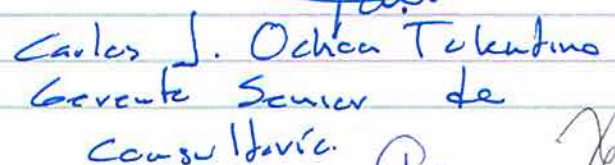 Carlos J. Ochoa Tolentino
Gerente Senior de
Consultoría.